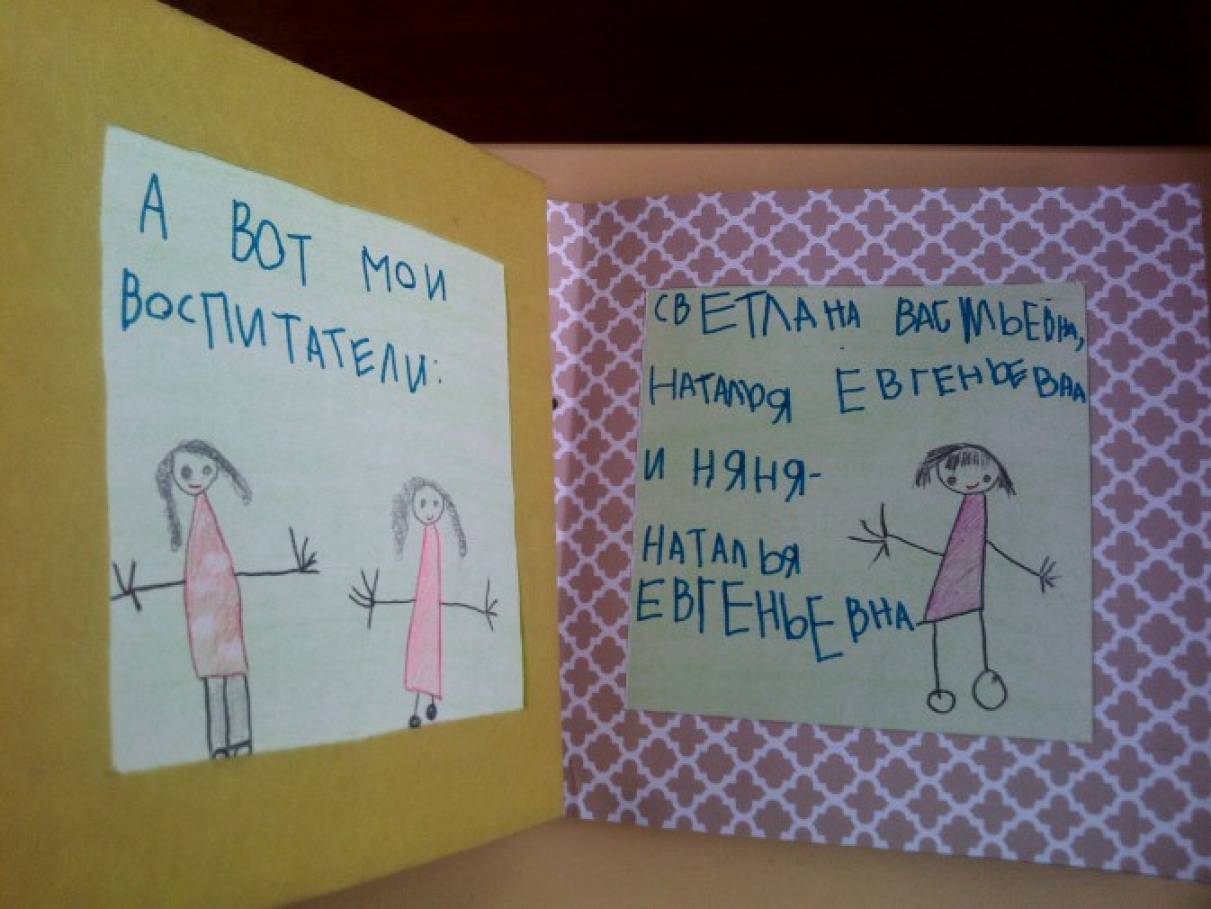 А ВОТ МОИ
ВОСПИТАТЕЛИ:
СВЕТЛАНА ВАСИЛЬЕВНА,
НАТАЛЬЯ ЕВГЕНЬЕВНА
И НЯНЯ-
НАТАЛЬЯ
ЕВГЕНЬЕВНА